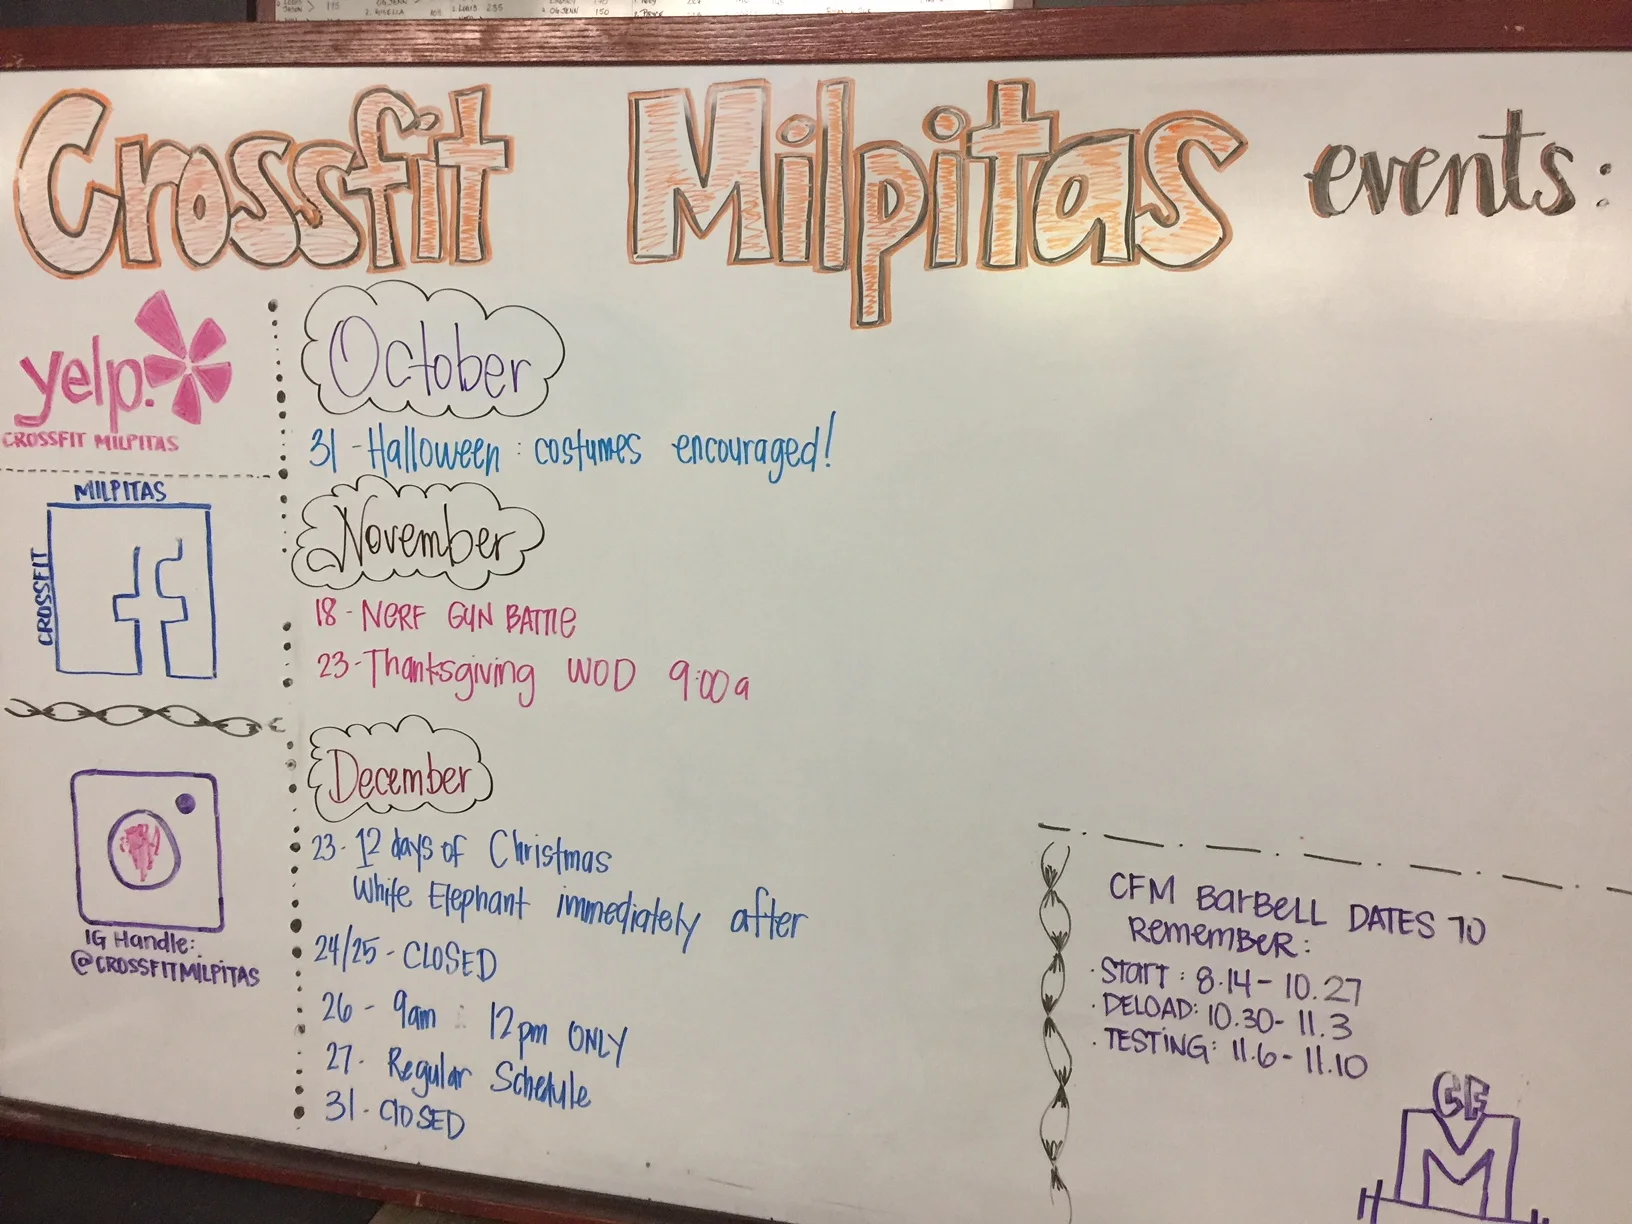 Crossfit Milpitas events:
yelp.
CROSSFIT MILPITAS
MILPITAS
CROSSFIT
f
IG Handle:
@CROSSFITMILPITAS
October
31 - Halloween : costumes encouraged!
November
18 - NERF GUN BATTLE
23 - Thanksgiving WOD 9:00a
December
23 - 12 days of Christmas
White Elephant immediately after
24/25 - CLOSED
26 - 9am : 12pm ONLY
27 - Regular Schedule
31 - CLOSED
CFM BARBELL DATES TO
REMEMBER:
· START : 8.14 - 10.27
· DELOAD: 10.30 - 11.3
· TESTING: 11.6 - 11.10
CF
M